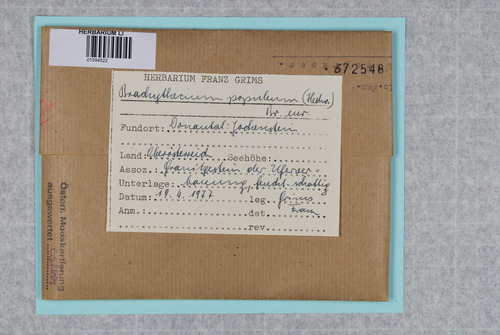 HERBARIUM LI
01594522
672548
HERBARIUM FRANZ GRIMS
Brachythecium populeum (Hedw.)
Br. eur.
Fundort: Donautal: Jochenstein
Land: Oberösterreich Seehöhe:
Assoz.: Granitgestein der Uferver=
Unterlage: bauung, feucht-schattig
Datum: 19.4.1977 leg. Grims
Anm.: det. Franz
rev.
Österr. Mooskartierung
ausgewertet